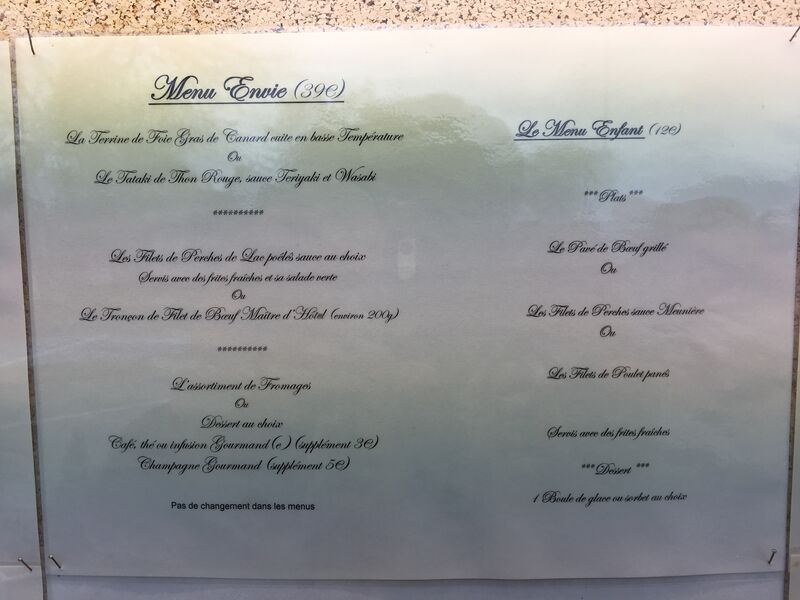 Menu Envie (39€)
La Terrine de Foie Gras de Canard cuite en basse Température
Ou
Le Tataki de Thon Rouge, sauce Teriyaki et Wasabi
**********
Les Filets de Perches de Lac poêlés sauce au choix
Servis avec des frites fraîches et sa salade verte
Ou
Le Tronçon de Filet de Bœuf Maître d'Hôtel (environ 200g)
**********
L'assortiment de Fromages
Ou
Dessert au choix
Café, thé ou infusion Gourmand(e) (supplément 3€)
Champagne Gourmand (supplément 5€)
Pas de changement dans les menus
Le Menu Enfant (12€)
***Plats***
Le Pavé de Bœuf grillé
Ou
Les Filets de Perches sauce Meunière
Ou
Les Filets de Poulet panés
Servis avec des frites fraîches
***Dessert ***
1 Boule de glace ou sorbet au choix